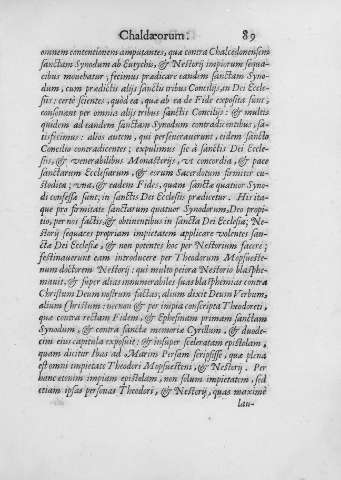 Chaldæorum: 89
omnem contentionem amputantes, quæ contra Chalcedonensem
sanctam Synodum ab Eutychio, & Nestorij impiorum sequa-
cibus mouebatur; fecimus prædicare eandem sanctam Syno-
dum, cum prædictis alijs sanctis tribus Concilijs, in Dei Eccle-
sijs: certè scientes, quòd ea, quæ ab ea de Fide exposita sunt,
consonant per omnia alijs tribus sanctis Concilijs: & multis
quidem ad eandem sanctam Synodum contradicentibus, sa-
tisfecimus: alios autem, qui perseuerauerunt, eidem sancto
Concilio contradicentes; expulimus sic à sanctis Dei Eccle-
sijs, & venerabilibus Monasterijs, vt concordia, & pace
sanctarum Ecclesiarum, & eorum Sacerdotum firmiter cu-
stodita; vna, & eadem Fides, quam sancta quatuor Syno-
di confessæ sunt; in sanctis Dei Ecclesijs prædicetur. His ita-
que pro firmitate sanctarum quatuor Synodorum, Deo propi-
tio, per nos factis, & obtinentibus in sancta Dei Ecclesia; Ne-
storij sequaces propriam impietatem applicare volentes san-
ctæ Dei Ecclesiæ, & non potentes hoc per Nestorium facere;
festinauerunt eam introducere per Theodorum Mopsueste-
num doctorem Nestorij: qui multo peiora Nestorio blasphe-
mauit, & super alias innumerabiles suas blasphemias contra
Christum Deum nostrum factas; alium dixit Deum Verbum,
alium Christum: necnon & per impia conscripta Theodoreti,
quæ contra rectam Fidem, & Ephesinam primam sanctam
Synodum, & contra sanctæ memoriæ Cyrillum, & duode-
cim eius capitula exposuit: & insuper sceleratam epistolam,
quam dicitur Ibas ad Marim Persam scripsisse, quæ plena
est omni impietate Theodori Mopsuesteni, & Nestorij. Per
hanc etenim impiam epistolam, non solùm impietatem, sed
etiam ipsas personas Theodori, & Nestorij, quas maximè
lau-